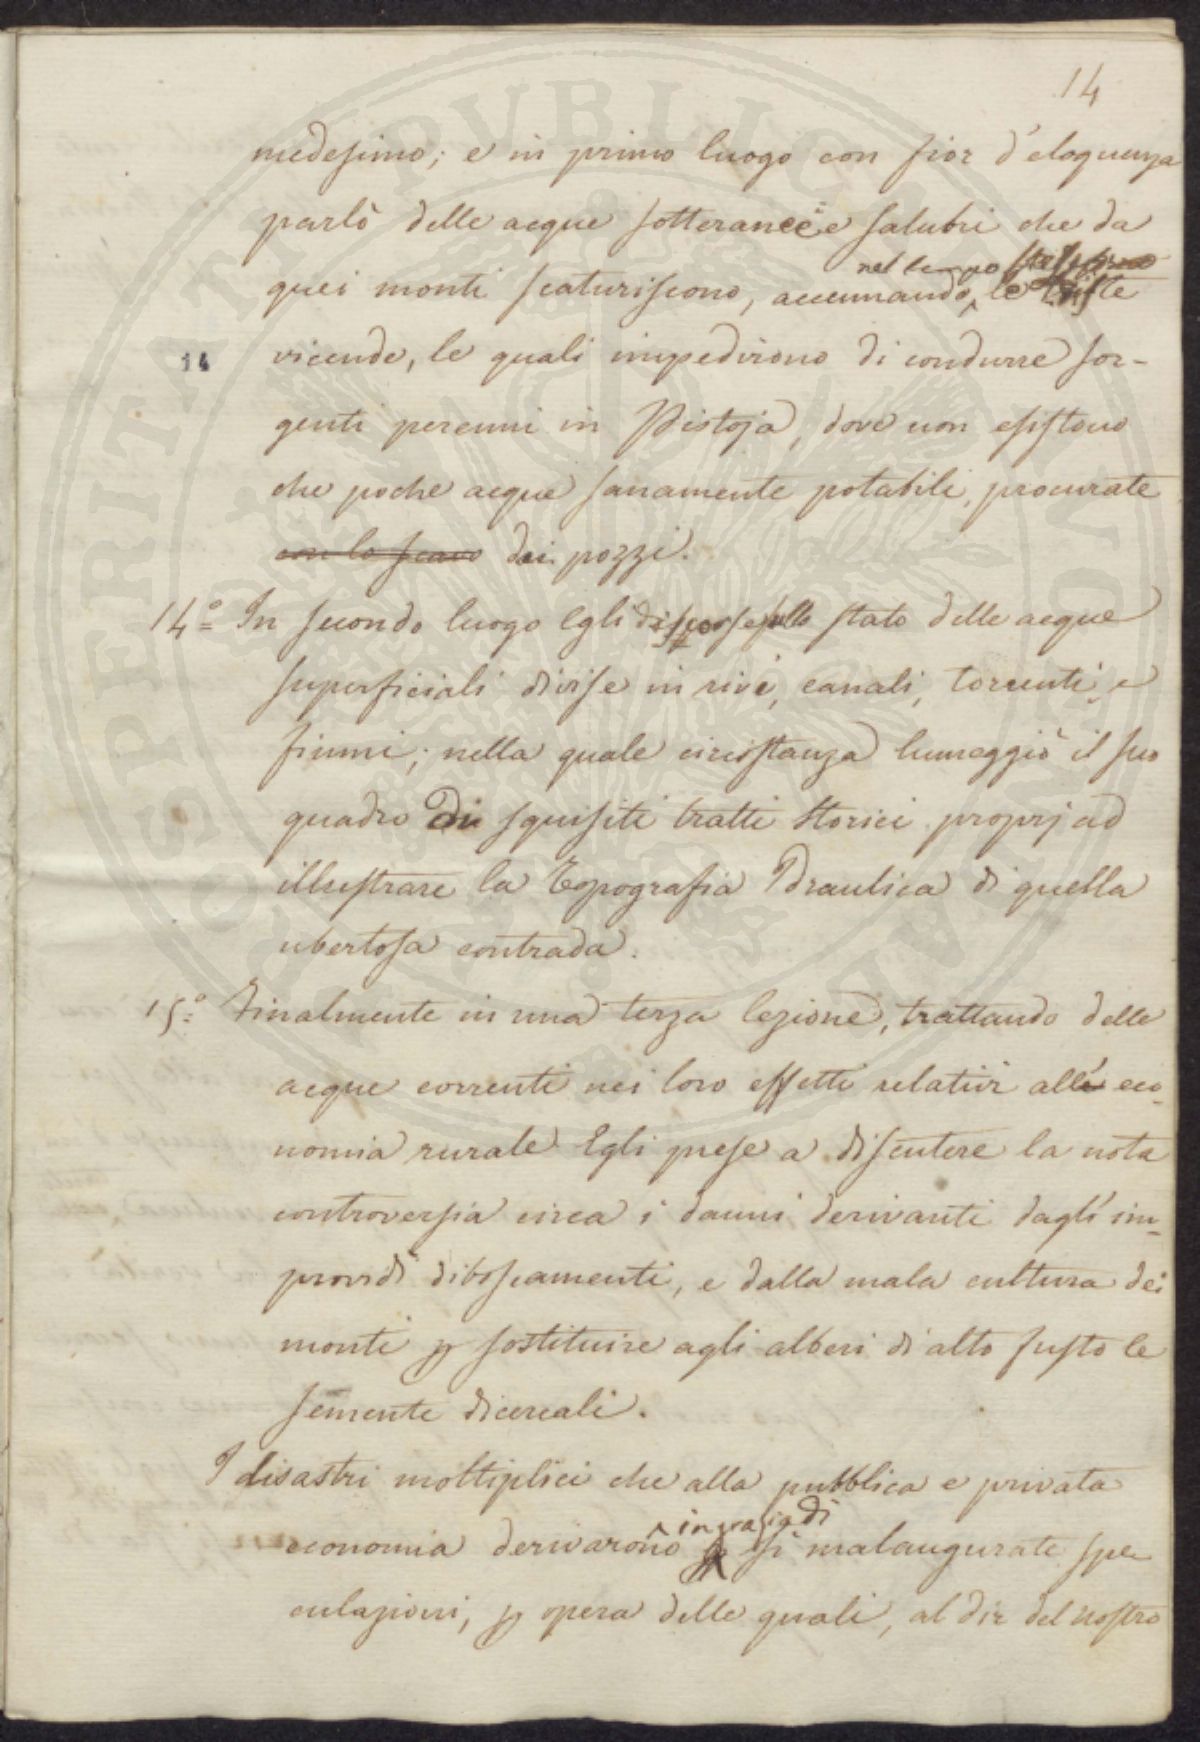 14
medesimo; e in primo luogo con fior d'eloquenza
parlò delle acque sotteranee e salubri che da
nel tempo stesso
quei monti scaturiscono, accennando le triste
14
vicende, le quali impedirono di condurre sor-
genti perenni in Pistoja, dove non esistono
che poche acque sanamente potabili, procurate
con lo scavo dai pozzi.
14.° In secondo luogo Egli discorse sullo stato delle acque
superficiali divise in rivi, canali, torrenti, e
fiumi; nella quale circostanza lumeggiò il suo
quadro di squisiti tratti storici proprj ad
illustrare la Topografia Idraulica di quella
ubertosa contrada.
15.° Finalmente in una terza lezione, trattando delle
acque correnti nei loro effetti relativi all' eco-
nomia rurale Egli prese a discutere la nota
controversia circa i danni derivanti dagl'im-
providi diboscamenti, e dalla mala cultura dei
monti p sostituire agli alberi di alto fusto le
semente di cereali.
I disastri moltiplici che alla pubblica e privata
in grazia di
economia derivarono sì malaugurate spe
culazioni, p opera delle quali, al dir del nostro
PROSPERITATI PUBLICAE